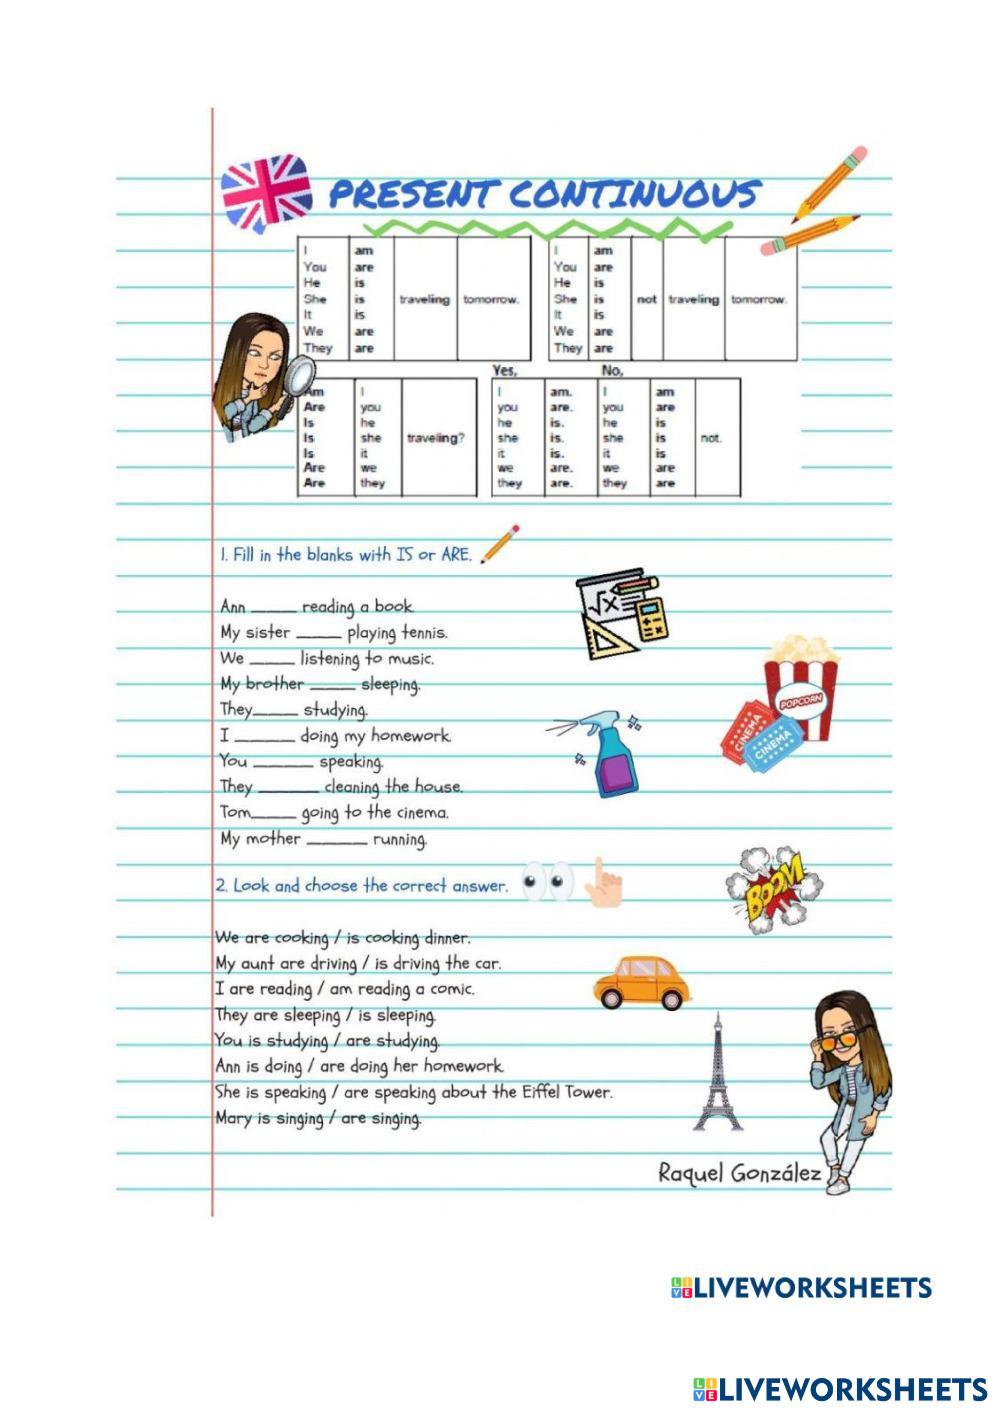 PRESENT CONTINUOUS
I am
You are
He is
She is traveling tomorrow.
It is
We are
They are
I am
You are
He is
She is not traveling tomorrow.
It is
We are
They are
Am I
Are you
Is he
Is she traveling?
Is it
Are we
Are they
Yes, No,
I am. I am
you are. you are
he is. he is
she is. she is not.
it is. it is
we are. we are
they are. they are
1. Fill in the blanks with IS or ARE.
Ann _____ reading a book.
My sister _____ playing tennis.
We _____ listening to music.
My brother _____ sleeping.
They_____ studying.
I _______ doing my homework.
You _______ speaking.
They _______ cleaning the house.
Tom_____ going to the cinema.
My mother _______ running.
√x
POPCORN
CINEMA
CINEMA
2. Look and choose the correct answer.
BOOM
We are cooking / is cooking dinner.
My aunt are driving / is driving the car.
I are reading / am reading a comic.
They are sleeping / is sleeping.
You is studying / are studying.
Ann is doing / are doing her homework.
She is speaking / are speaking about the Eiffel Tower.
Mary is singing / are singing.
Raquel González
LIVE LIVEWORKSHEETS
LIVE LIVEWORKSHEETS